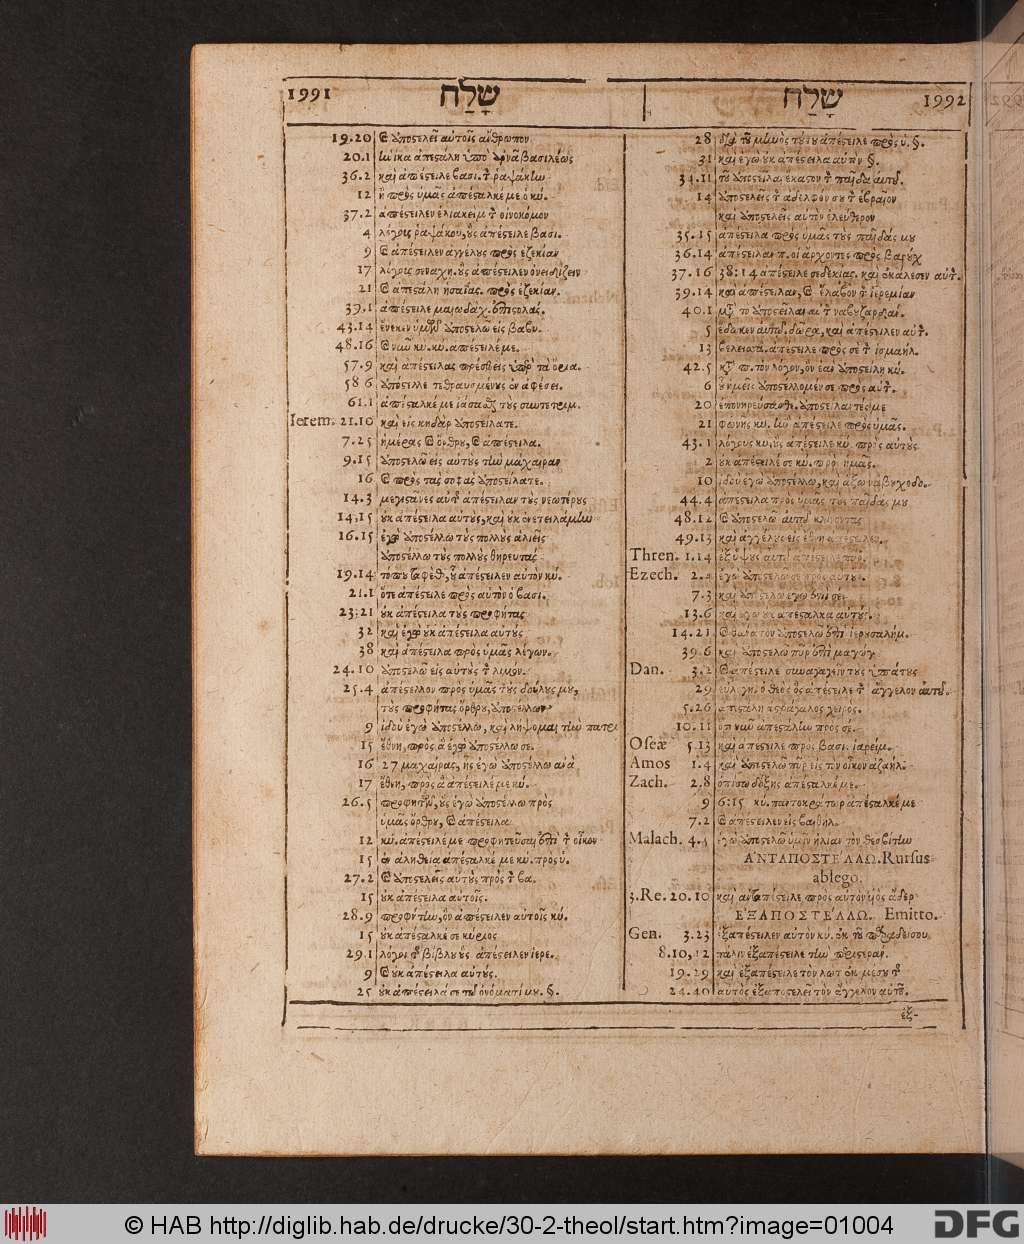 1991 שָׁלַח
19.20 ἀποστελεῖ αὐτοῖς ἄνθρωπον
20.1 ἡνίκα ἀπεστάλη ὑπὸ ἀρνᾶ βασιλέως
36.2 καὶ ἀπέστειλε βασι. ῥαψάκην
12 ἢ πρὸς ὑμᾶς ἀπέσταλκέ με ὁ κύ.
37.2 ἀπέστειλεν ἐλιακεὶμ οἰκονόμον
4 λόγους ῥαψάκου, οὓς ἀπέστειλε βασι.
9 ἀπέστειλεν ἀγγέλους πρὸς ἐζεκίαν
17 λόγους σεναχη. οὓς ἀπέστειλεν ὀνειδίζειν
21 ἀπεστάλη ησαΐας πρὸς ἐζεκίαν.
39.1 ἀπέστειλε ἐπιστολάς.
43.14 ἕνεκεν ὑμῶν ἀποστελῶ εἰς βαβυ.
48.16 νῦν κύ. κύ. ἀπέστειλέ με.
57.9 καὶ ἀπέστειλας πρέσβεις ὑπὲρ τὰ ὅρια.
58.6 ἀπόστελλε τεθραυσμένους ἐν ἀφέσει.
61.1 ἀπέσταλκέ με ἰάσασθαι τοὺς συντετριμ.
Ierem. 21.10 καὶ εἰς κηδὰρ ἀποστείλατε.
7.25 ἡμέρας ὄρθρου, ἀπέστειλα.
9.15 ἀποστελῶ εἰς αὐτοὺς τὴν μάχαιραν
16 πρὸς τὰς σοφὰς ἀποστείλατε.
14.3 μεγιστᾶνες αὐτῆς ἀπέστειλαν τοὺς νεωτέρους
14.15 οὐκ ἀπέστειλα αὐτούς, καὶ οὐκ ἐνετειλάμην
16.15 ἐγὼ ἀποστέλλω τοὺς πολλοὺς ἁλιεῖς
ἀποστέλλω τοὺς πολλοὺς θηρευτάς
19.14 ταφὲθ, οὗ ἀπέστειλεν αὐτὸν κύ.
21.1 ὅτε ἀπέστειλε πρὸς αὐτὸν ὁ βασι.
23:21 οὐκ ἀπέστειλα τοὺς προφήτας
32 καὶ ἐγὼ οὐκ ἀπέστειλα αὐτούς
38 καὶ ἀπέστειλα πρὸς ὑμᾶς λέγων.
24.10 ἀποστελῶ εἰς αὐτοὺς λιμόν.
25.4 ἀπέστελλον πρὸς ὑμᾶς τοὺς δούλους μου,
τοὺς προφήτας ὄρθρου, ἀποστέλλων
9 ἰδοὺ ἐγὼ ἀποστέλλω, καὶ λήψομαι τὴν πατρι
15 ἔθνη, πρὸς ἃ ἐγὼ ἀποστέλλω σε.
16 27 μαχαίρας, ἧς ἐγὼ ἀποστέλλω ἀνὰ
17 ἔθνη, πρὸς ἃ ἀπέστειλέ με κύ.
26.5 προφητῶν, οὓς ἐγὼ ἀποστέλλω πρὸς
ὑμᾶς ὄρθρου, ἀπέστειλα
12 κύ. ἀπέστειλέ με προφητεῦσαι ἐπὶ οἶκον
15 ἐν ἀληθείᾳ ἀπέσταλκέ με κύ. πρὸς ὑ.
27.2 ἀποστελεῖς αὐτοὺς πρὸς βα.
15 οὐκ ἀπέστειλα αὐτούς.
28.9 προφήτην, ὃν ἀπέστειλεν αὐτοῖς κύ.
15 οὐκ ἀπέσταλκέ σε κύριος
29.1 λόγοι βίβλου οὓς ἀπέστειλεν ἱερε.
9 οὐκ ἀπέστειλα αὐτούς.
25 οὐκ ἀπέστειλά σε τῷ ὀνόματί μου. §.
שָׁלַח 1992
28 τούτου ἀπέστειλε πρὸς ὑ. §.
31 καὶ ἐγὼ οὐκ ἀπέστειλα αὐτὸν §.
34.11 τοῦ ἀποστεῖλαι ἕκαστον παῖδα αὐτοῦ.
14 ἀποστελεῖς ἀδελφόν σου ἑβραῖον
καὶ ἀποστελεῖς αὐτὸν ἐλεύθερον
35.15 ἀπέστειλα πρὸς ὑμᾶς τοὺς παῖδάς μου
36.14 ἀπέστειλαν π. οἱ ἄρχοντες πρὸς βαροὺχ
37.16 38:14 ἀπέστειλε σεδεκίας. καὶ ἐκάλεσεν αὐτ.
39.14 καὶ ἀπέστειλαν, ἔλαβον ἱερεμίαν
40.1 μετὰ τὸ ἀποστεῖλαι ναβουζαρδὰν.
5 ἔδωκεν αὐτῷ δῶρα, καὶ ἀπέστειλεν αὐτ.
13 ἀπέστειλε πρὸς σὲ ἰσμαήλ.
42.5 τὸν λόγον, ὃν ἐὰν ἀποστείλῃ κύ.
6 ἡμεῖς ἀποστέλλομέν σε πρὸς αὐτ.
20 ἐπονηρεύσασθε. ἀποστείλαντές με
21 φωνῆς κύ. ἣν ἀπέστειλε πρὸς ὑμᾶς.
43.1 λόγους κύ. οὓς ἀπέστειλε κύ. πρὸς αὐτούς
2 οὐκ ἀπέστειλέ σε κύ. πρὸς ἡμᾶς.
10 ἰδοὺ ἐγὼ ἀποστέλλω, καὶ ἄξω ναβουχοδο.
44.4 ἀπέστειλα πρὸς ὑμᾶς τοὺς παῖδάς μου
48.12 ἀποστελῶ αὐτῷ κλίνοντας
49.13 καὶ ἀγγέλους εἰς ἔθνη ἀπέστειλεν.
Thren. 1.14 ἐξ ὕψους αὐτοῦ ἀπέστειλε πῦρ.
Ezech. 2.4 ἐγὼ ἀποστελῶ σε πρὸς αὐτού.
7.3 καὶ ἀποστελῶ ἐγὼ ἐπὶ σε.
13.6 καὶ ἐγὼ οὐκ ἀπέσταλκα αὐτούς.
14.21 θάνατον ἀποστελῶ ἐπὶ ἱερουσαλήμ.
39.6 καὶ ἀποστελῶ πῦρ ἐπὶ μαγώγ.
Dan. 3.2 ἀπέστειλε συναγαγεῖν τοὺς ὑπάτους
29 εὐλογη. ὁ θεὸς ὃς ἀπέστειλε ἄγγελον αὐτοῦ.
5.26 ἀπεστάλη ἀστράγαλος χειρός.
10.11 ὅτι νῦν ἀπεστάλην πρός σέ.
Oseæ 5.13 καὶ ἀπέστειλε πρὸς βασι. ἰαρείμ.
Amos 1.4 καὶ ἀποστελῶ πῦρ εἰς τὸν οἶκον ἀζαήλ.
Zach. 2.8 ὀπίσω δόξης ἀπέσταλκέ με.
9 6:15 κύ. παντοκράτωρ ἀπέσταλκέ με
7.2 ἀπέστειλεν εἰς βαιθήλ.
Malach. 4.5 ἐγὼ ἀποστελῶ ὑμῖν ἠλίαν τὸν θεσβίτην
ΑΝΤΑΠΟΣΤΕΛΛΩ. Rursus
ablego.
3.Re. 20.10 καὶ ἀνταπέστειλε πρὸς αὐτὸν υἱὸς ἄδερ
ΕΞΑΠΟΣΤΕΛΛΩ. Emitto.
Gen. 3.23 ἐξαπέστειλεν αὐτὸν κύ. ἐκ τοῦ παραδείσου
8.10,12 πάλιν ἐξαπέστειλε τὴν περιστεράν.
19.29 καὶ ἐξαπέστειλε τὸν λὼτ ἐκ μέσου
24.40 αὐτὸς ἐξαποστελεῖ τὸν ἄγγελον αὐτοῦ.
ἐξ-
© HAB http://diglib.hab.de/drucke/30-2-theol/start.htm?image=01004
DFG